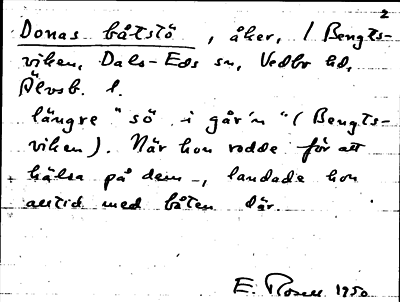 2
Donas båtstö, åker, / Bengts-
viken, Dals-Eds sn, Vedbo hd,
Älvsb. l.
längre "sö i går'n" (Bengts-
viken). När hon rodde för att
hälsa på dem –, landade hon
alltid med båten där.
E. Rosell 1950